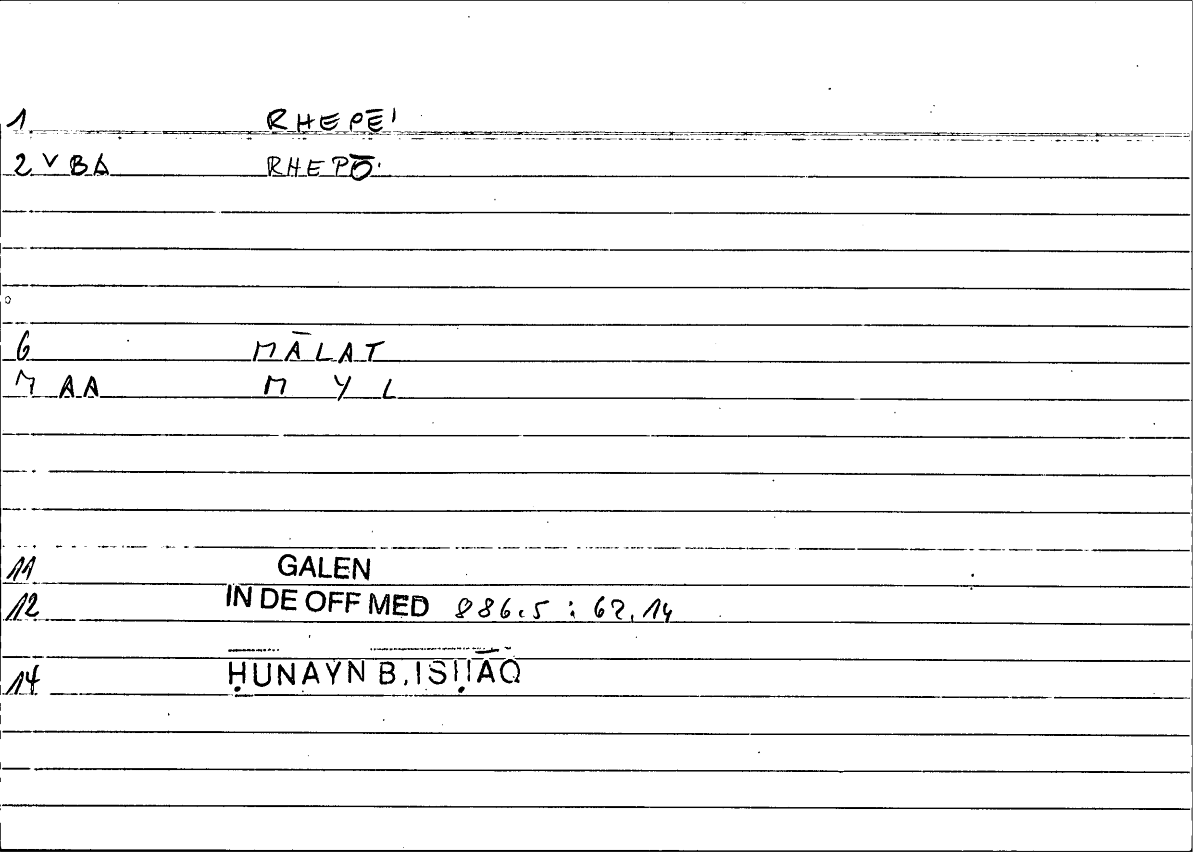 1 RHEPĒ'
2 V BA RHEPŌ
6 MĀLAT
7 AA M Y L
11 GALEN
12 IN DE OFF MED 886.5 : 62.14
14 ḤUNAYN B. ISḤĀQ